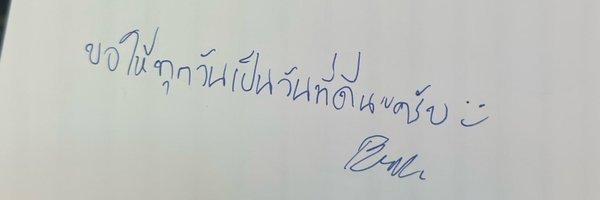 ขอให้ทุกวันเป็นวันที่ดีนะครับ :)